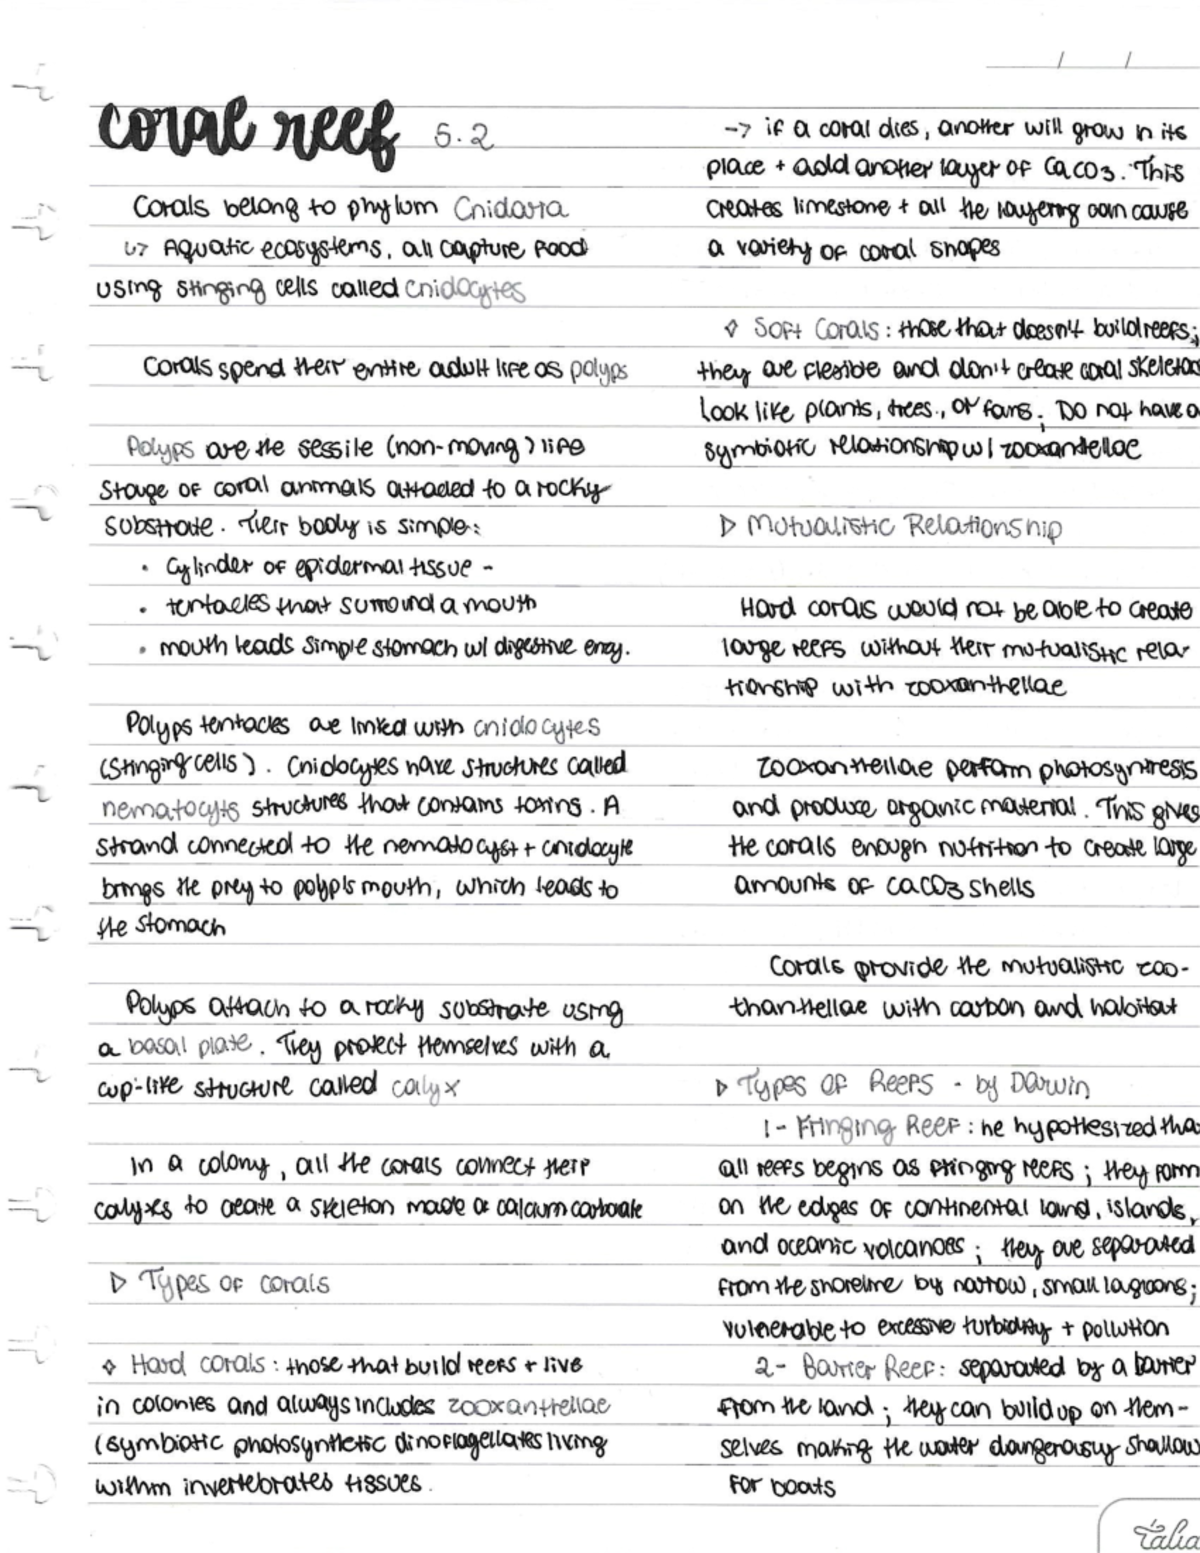 coral reef 5.2
Corals belong to phylum Cnidaria
↳ Aquatic ecosystems, all capture food
using stinging cells called cnidocytes
Corals spend their entire adult life as polyps
Polyps are the sessile (non-moving) life
stage of coral animals attached to a rocky
substrate. Their body is simple:
• Cylinder of epidermal tissue -
• tentacles that surround a mouth
• mouth leads simple stomach w/ digestive enzy.
Polyps tentacles are linked with cnidocytes
(stinging cells). Cnidocytes have structures called
nematocyts structures that contains toxins. A
strand connected to the nematocyst + cnidocyte
brings the prey to polyp's mouth, which leads to
the stomach
Polyps attach to a rocky substrate using
a basal plate. They protect themselves with a
cup-like structure called calyx
In a colony, all the corals connect their
calyxes to create a skeleton made of calcium carbonate
▷ Types of corals
◇ Hard corals: those that build reefs + live
in colonies and always includes zooxanthellae
(symbiotic photosynthetic dinoflagellates living
within invertebrates tissues.
/ /
-> if a coral dies, another will grow in its
place + add another layer of CaCO3. This
creates limestone + all the layering can cause
a variety of coral shapes
◇ Soft Corals: those that doesn't build reefs;
they are flexible and don't create coral skeletons
look like plants, trees, or fans; Do not have a
symbiotic relationship w/ zooxantellae
▷ Mutualistic Relationship
Hard corals would not be able to create
large reefs without their mutualistic rela-
tionship with zooxanthellae
Zooxanthellae perform photosynthesis
and produce organic material. This gives
the corals enough nutrition to create large
amounts of CaCO3 shells
Corals provide the mutualistic zoo-
thanthellae with carbon and habitat
▷ Types of Reefs - by Darwin
1- Fringing Reef: he hypothesized tha
all reefs begins as fringing reefs; they form
on the edges of continental land, islands,
and oceanic volcanoes; they are separated
from the shoreline by narrow, small lagoons;
vulnerable to excessive turbidity + pollution
2- Barrier Reef: separated by a barrier
from the land; they can build up on them-
selves making the water dangerously shallow
for boats
talia